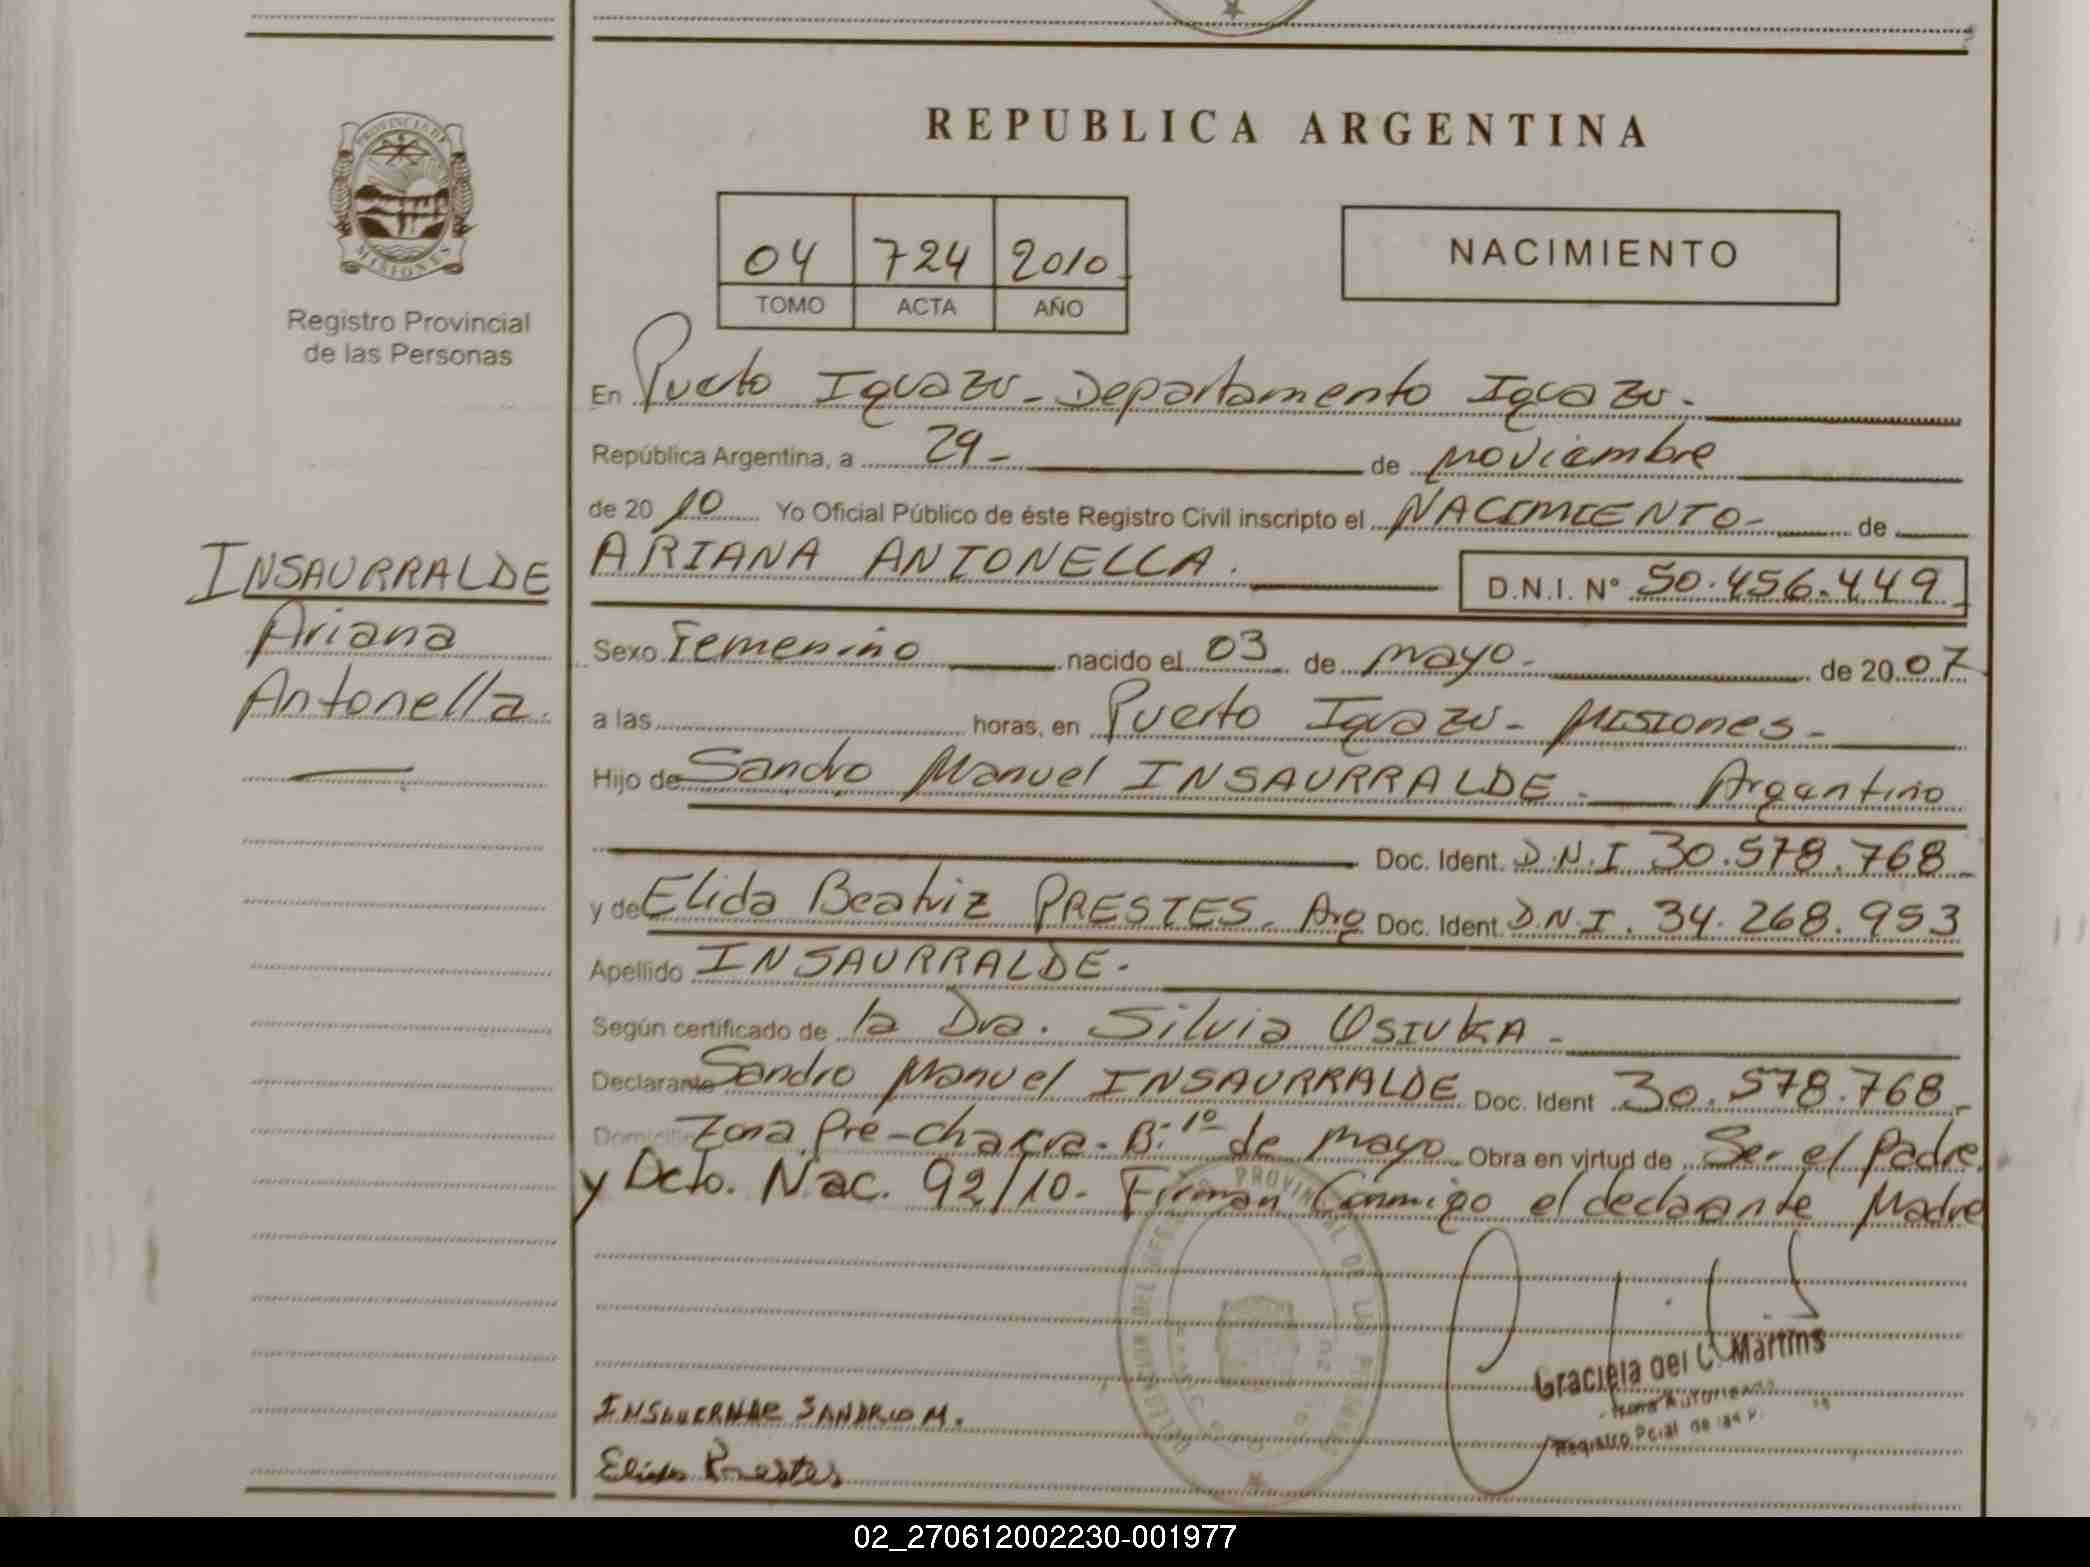 REPUBLICA ARGENTINA
PROVINCIA DE
MISIONES
Registro Provincial
de las Personas
04 724 2010
TOMO ACTA AÑO
NACIMIENTO
En Puerto Iguazu - Departamento Iguazu -
República Argentina, a 29 - de noviembre
de 20 10 Yo Oficial Público de éste Registro Civil inscripto el NACIMIENTO - de
ARIANA ANTONELLA. D.N.I. N° 50.456.449
INSAURRALDE
Ariana
Antonella.
Sexo Femenino nacido el 03 de mayo - de 20 07
a las horas, en Puerto Iguazu - Misiones -
Hijo de Sandro Manuel INSAURRALDE - Argentino
Doc. Ident. D.N.I 30.578.768
y de Elida Beatriz PRESTES. Arg Doc. Ident. D.N.I. 34.268.953
Apellido INSAURRALDE -
Según certificado de la Dra. Silvia OSIUKA -
Declarante Sandro Manuel INSAURRALDE Doc. Ident 30.578.768
Domicilio Zona Pre-chacra - B: 1º de mayo Obra en virtud de Ser el Padre
y Dcto. Nac. 92/10. Firman Conmigo el declarante Madre
Graciela del C. Martins
Registro Pcial de las P.
SANDRO M.
Elida Prestes
02_270612002230-001977